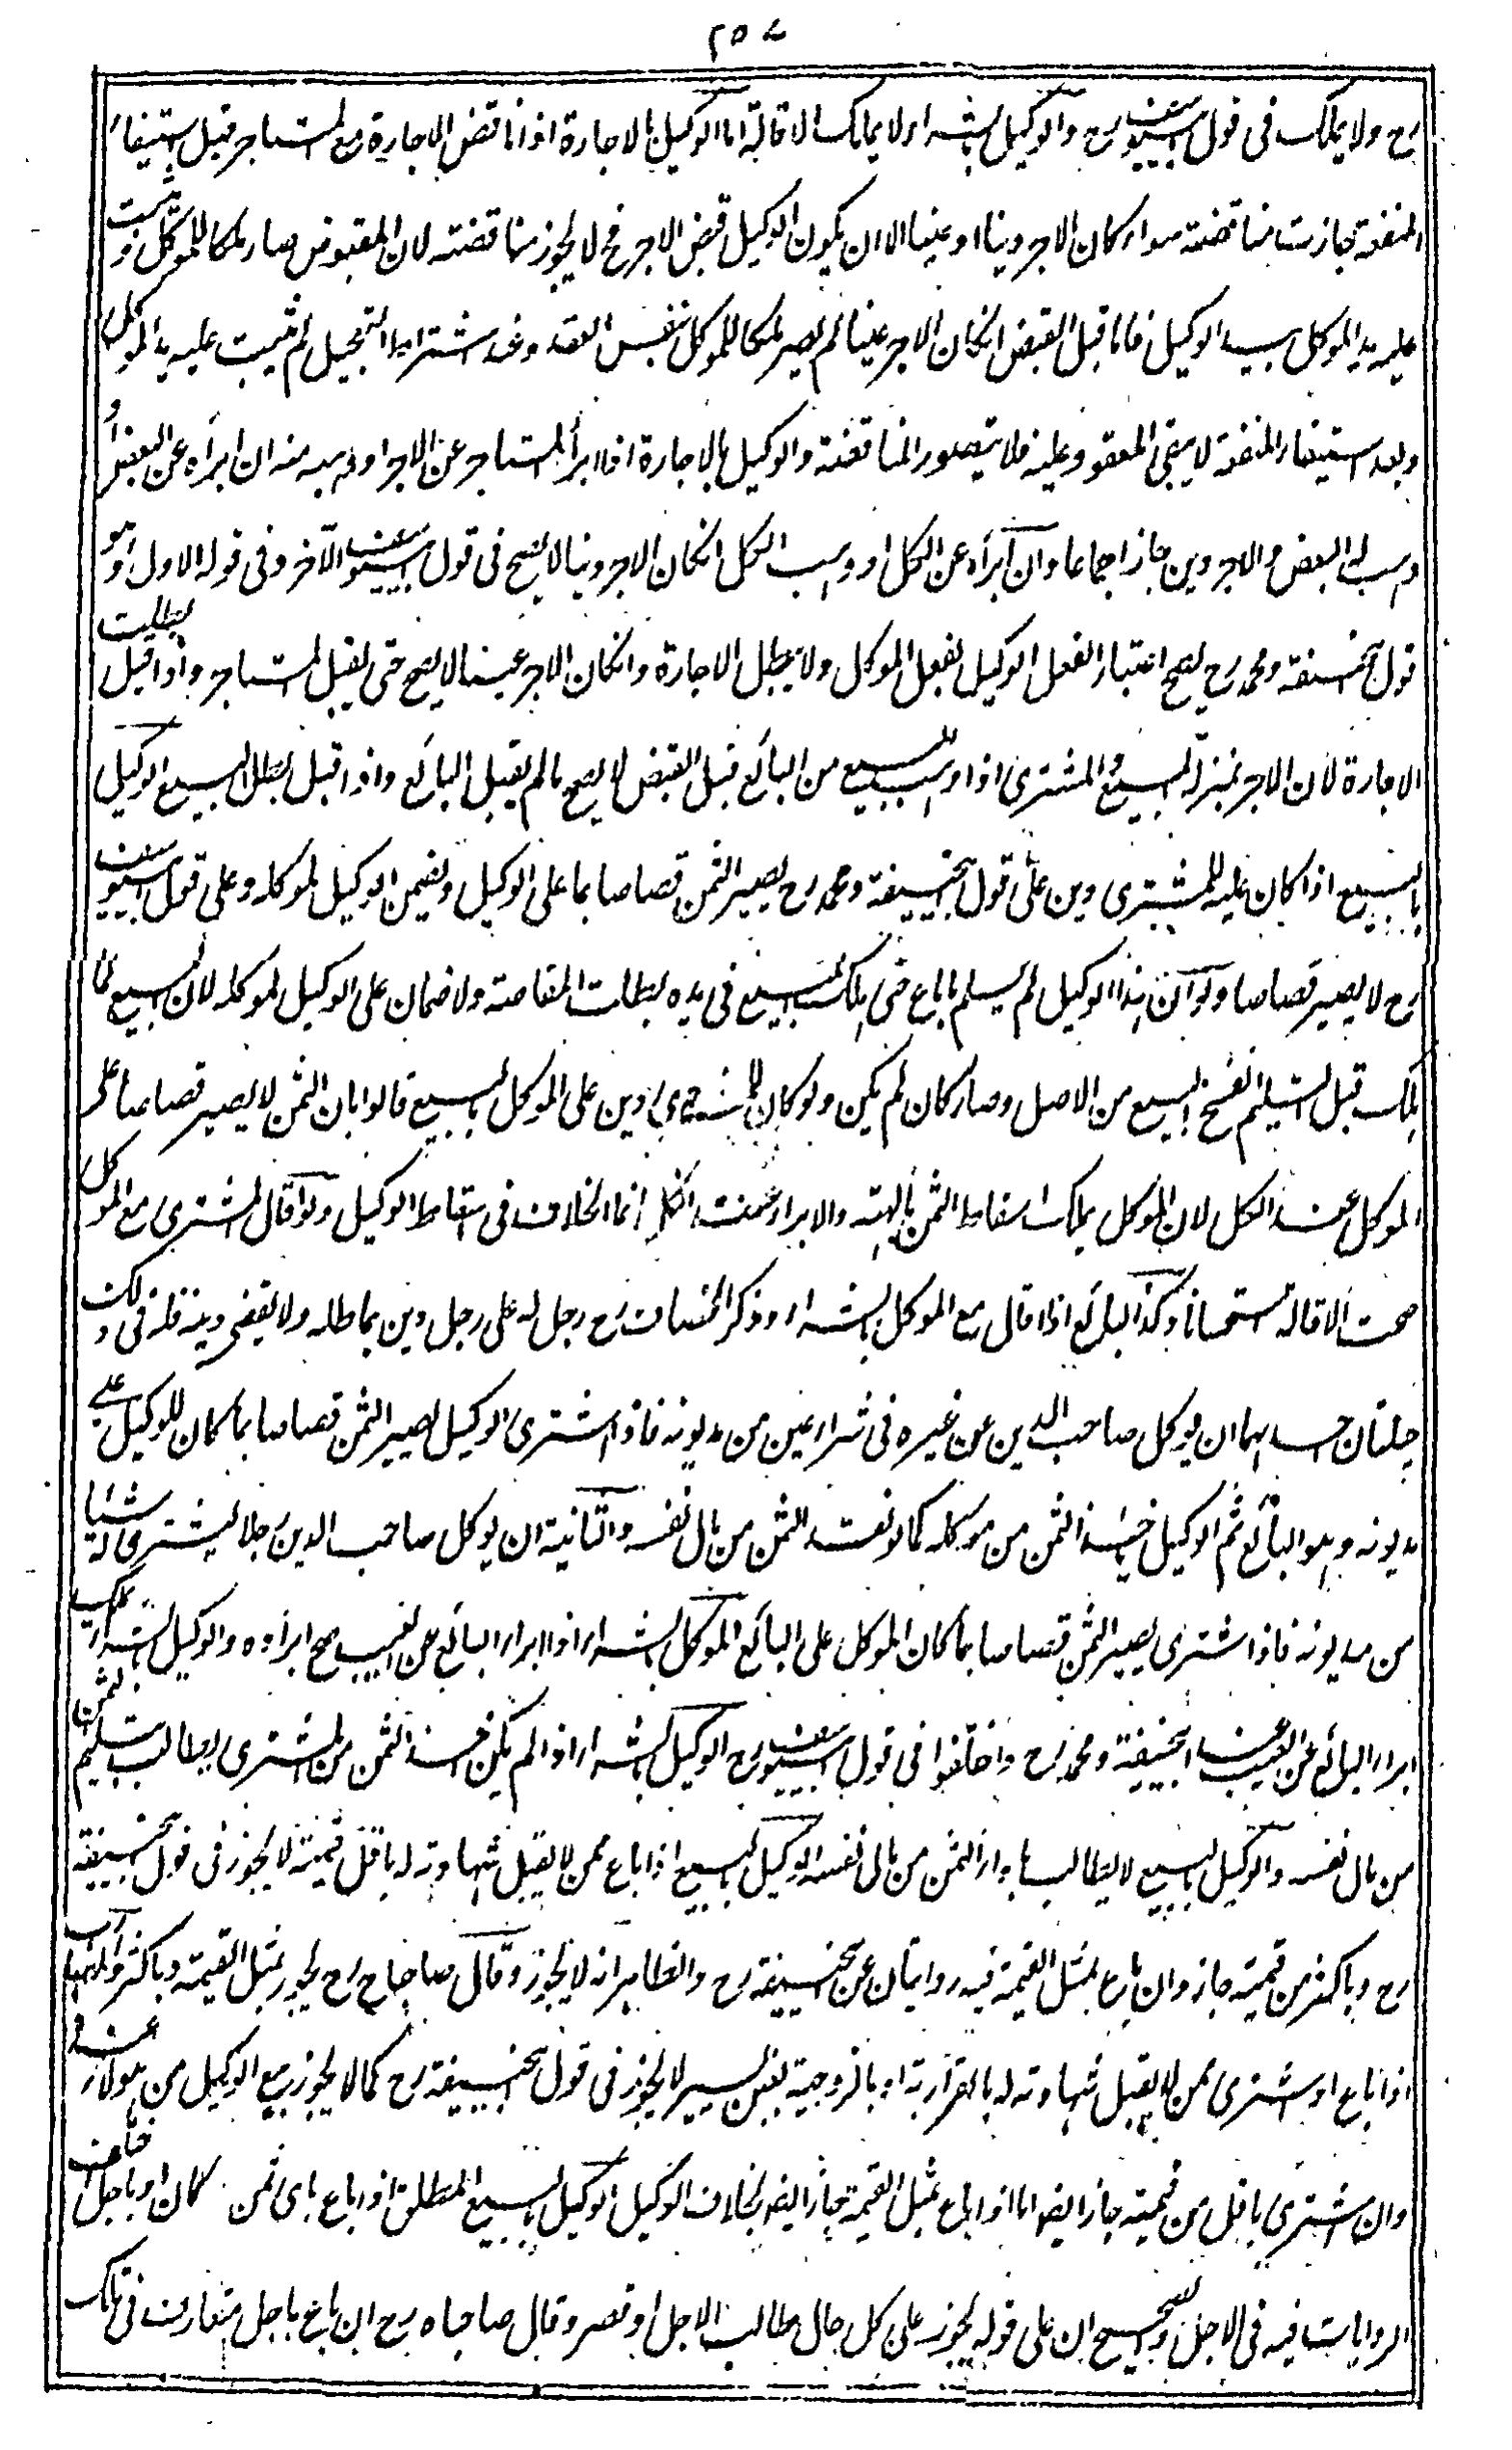 ٢٥٧
رح ولا يملك فى قول ابييوسف رح والوكيل بالشراء لا يملك الاقالة اما الوكيل بالاجارة اذا ناقض الاجارة مع المستاجر قبل استيفاء
المنفعة جازت مناقضته سواء كان الاجر دينا او عينا الا ان يكون الوكيل قبض الاجر فح لا يجوز مناقضته لان المقبوض صار ملكا للموكل وثبتت
عليه يد الموكل بيد الوكيل فاما قبل القبض انكان الاجر عينا لم يصر ملكا للموكل بنفس العقد وعند اشتراط التعجيل لم تثبت عليه يد الموكل
وبعد استيفاء المنفعة لا يبقى المعقود عليه فلا يتصور المناقضة والوكيل بالاجارة اذا ابرأ المستاجر عن الاجر او وهبه منه ان ابرأه عن البعض او
وهب له البعض والاجر دين جاز اجماعا وان ابرأه عن الكل او وهب الكل انكان الاجر دينا لا يصح فى قول ابييوسف الآخر وفى قوله الاول وهو
قول ابيحنيفة ومحمد رح يصح اعتبارا لفعل الوكيل بفعل الموكل ولا يبطل الاجارة وانكان الاجر عينا لا يصح حتى يقبل المستاجر واذا قبل بطلت
الاجارة لان الاجر بمنزلة المبيع والمشترى اذا وهب المبيع من البائع قبل القبض لا يصح ما لم يقبل البائع واذا قبل بطل البيع الوكيل
بالبيع اذا كان عليه للمشترى دين على قول ابيحنيفة ومحمد رح يصير الثمن قصاصا بما على الوكيل ويضمن الوكيل لموكله وعلى قول ابييوسف
رح لا يصير قصاصا ولو ان هذا الوكيل لم يسلم ما باع حتى هلك المبيع فى يده بطلت المقاصة ولا ضمان على الوكيل لموكله لان المبيع لما
هلك قبل التسليم انفسخ البيع من الاصل وصار كان لم يكن ولو كان للمشترى دين على الموكل بالبيع قالوا بان الثمن لا يصير قصاصا على
الموكل عند الكل لان الموكل يملك اسقاط الثمن بالهبة والابراء عند الكل انما الخلاف فى اسقاط الوكيل ولو اقال المشترى مع الموكل
صحت الاقالة استحسانا وكذا البائع اذا اقال مع الموكل بالشراء وذكر الخصاف رح رجل له على رجل دين يماطله ولا يقضى دينه فله فى ذلك
حيلتان احداهما ان يوكل صاحب الدين عن غيره فى شراء عين من مديونه فاذا اشترى الوكيل يصير الثمن قصاصا بما كان للوكيل على
مديونه وهو البائع ثم الوكيل ياخذ الثمن من موكله كما لو نقد الثمن من مال نفسه والثانية ان يوكل صاحب الدين رجلا ليشترى له شيئا
من مديونه فاذا اشترى يصير الثمن قصاصا بما كان للموكل على البائع الموكل بالشراء اذا ابرأ البائع عن العيب صح ابراؤه والوكيل بالشراء يملك
ابراء البائع عن العيب عند ابيحنيفة ومحمد رح واختلفوا فى قول ابييوسف رح الوكيل بالشراء اذا لم يكن اخذ الثمن من المشترى يطالب بتسليم الثمن
من مال نفسه والوكيل بالبيع لا يطالب باداء الثمن من مال نفسه الوكيل بالبيع اذا باع ممن لا يقبل شهادته له باقل من قيمته لا يجوز فى قول ابيحنيفة
رح وباكثر من قيمته جاز وان باع بمثل القيمة فيه روايتان عن ابيحنيفة رح والظاهر انه لا يجوز وقال صاحباه رح يجوز بمثل القيمة وباكثر
اذا باع او اشترى ممن لا يقبل شهادته له بالقرابة او بالزوجية بغبن يسير لا يجوز فى قول ابيحنيفة رح كما لا يجوز بيع الوكيل من هؤلاء عنده
وان اشترى باقل من قيمته جاز ايضا اما اذا باع بمثل القيمة جاز ايضا بخلاف الوكيل الوكيل بالبيع المطلق اذا باع باى ثمن كان او باجل اختلفت
الروايات فيه فى الاجل والصحيح ان على قوله يجوز على كل حال طالب الاجل او قصر وقال صاحباه رح ان باع باجل متعارف فى تلك